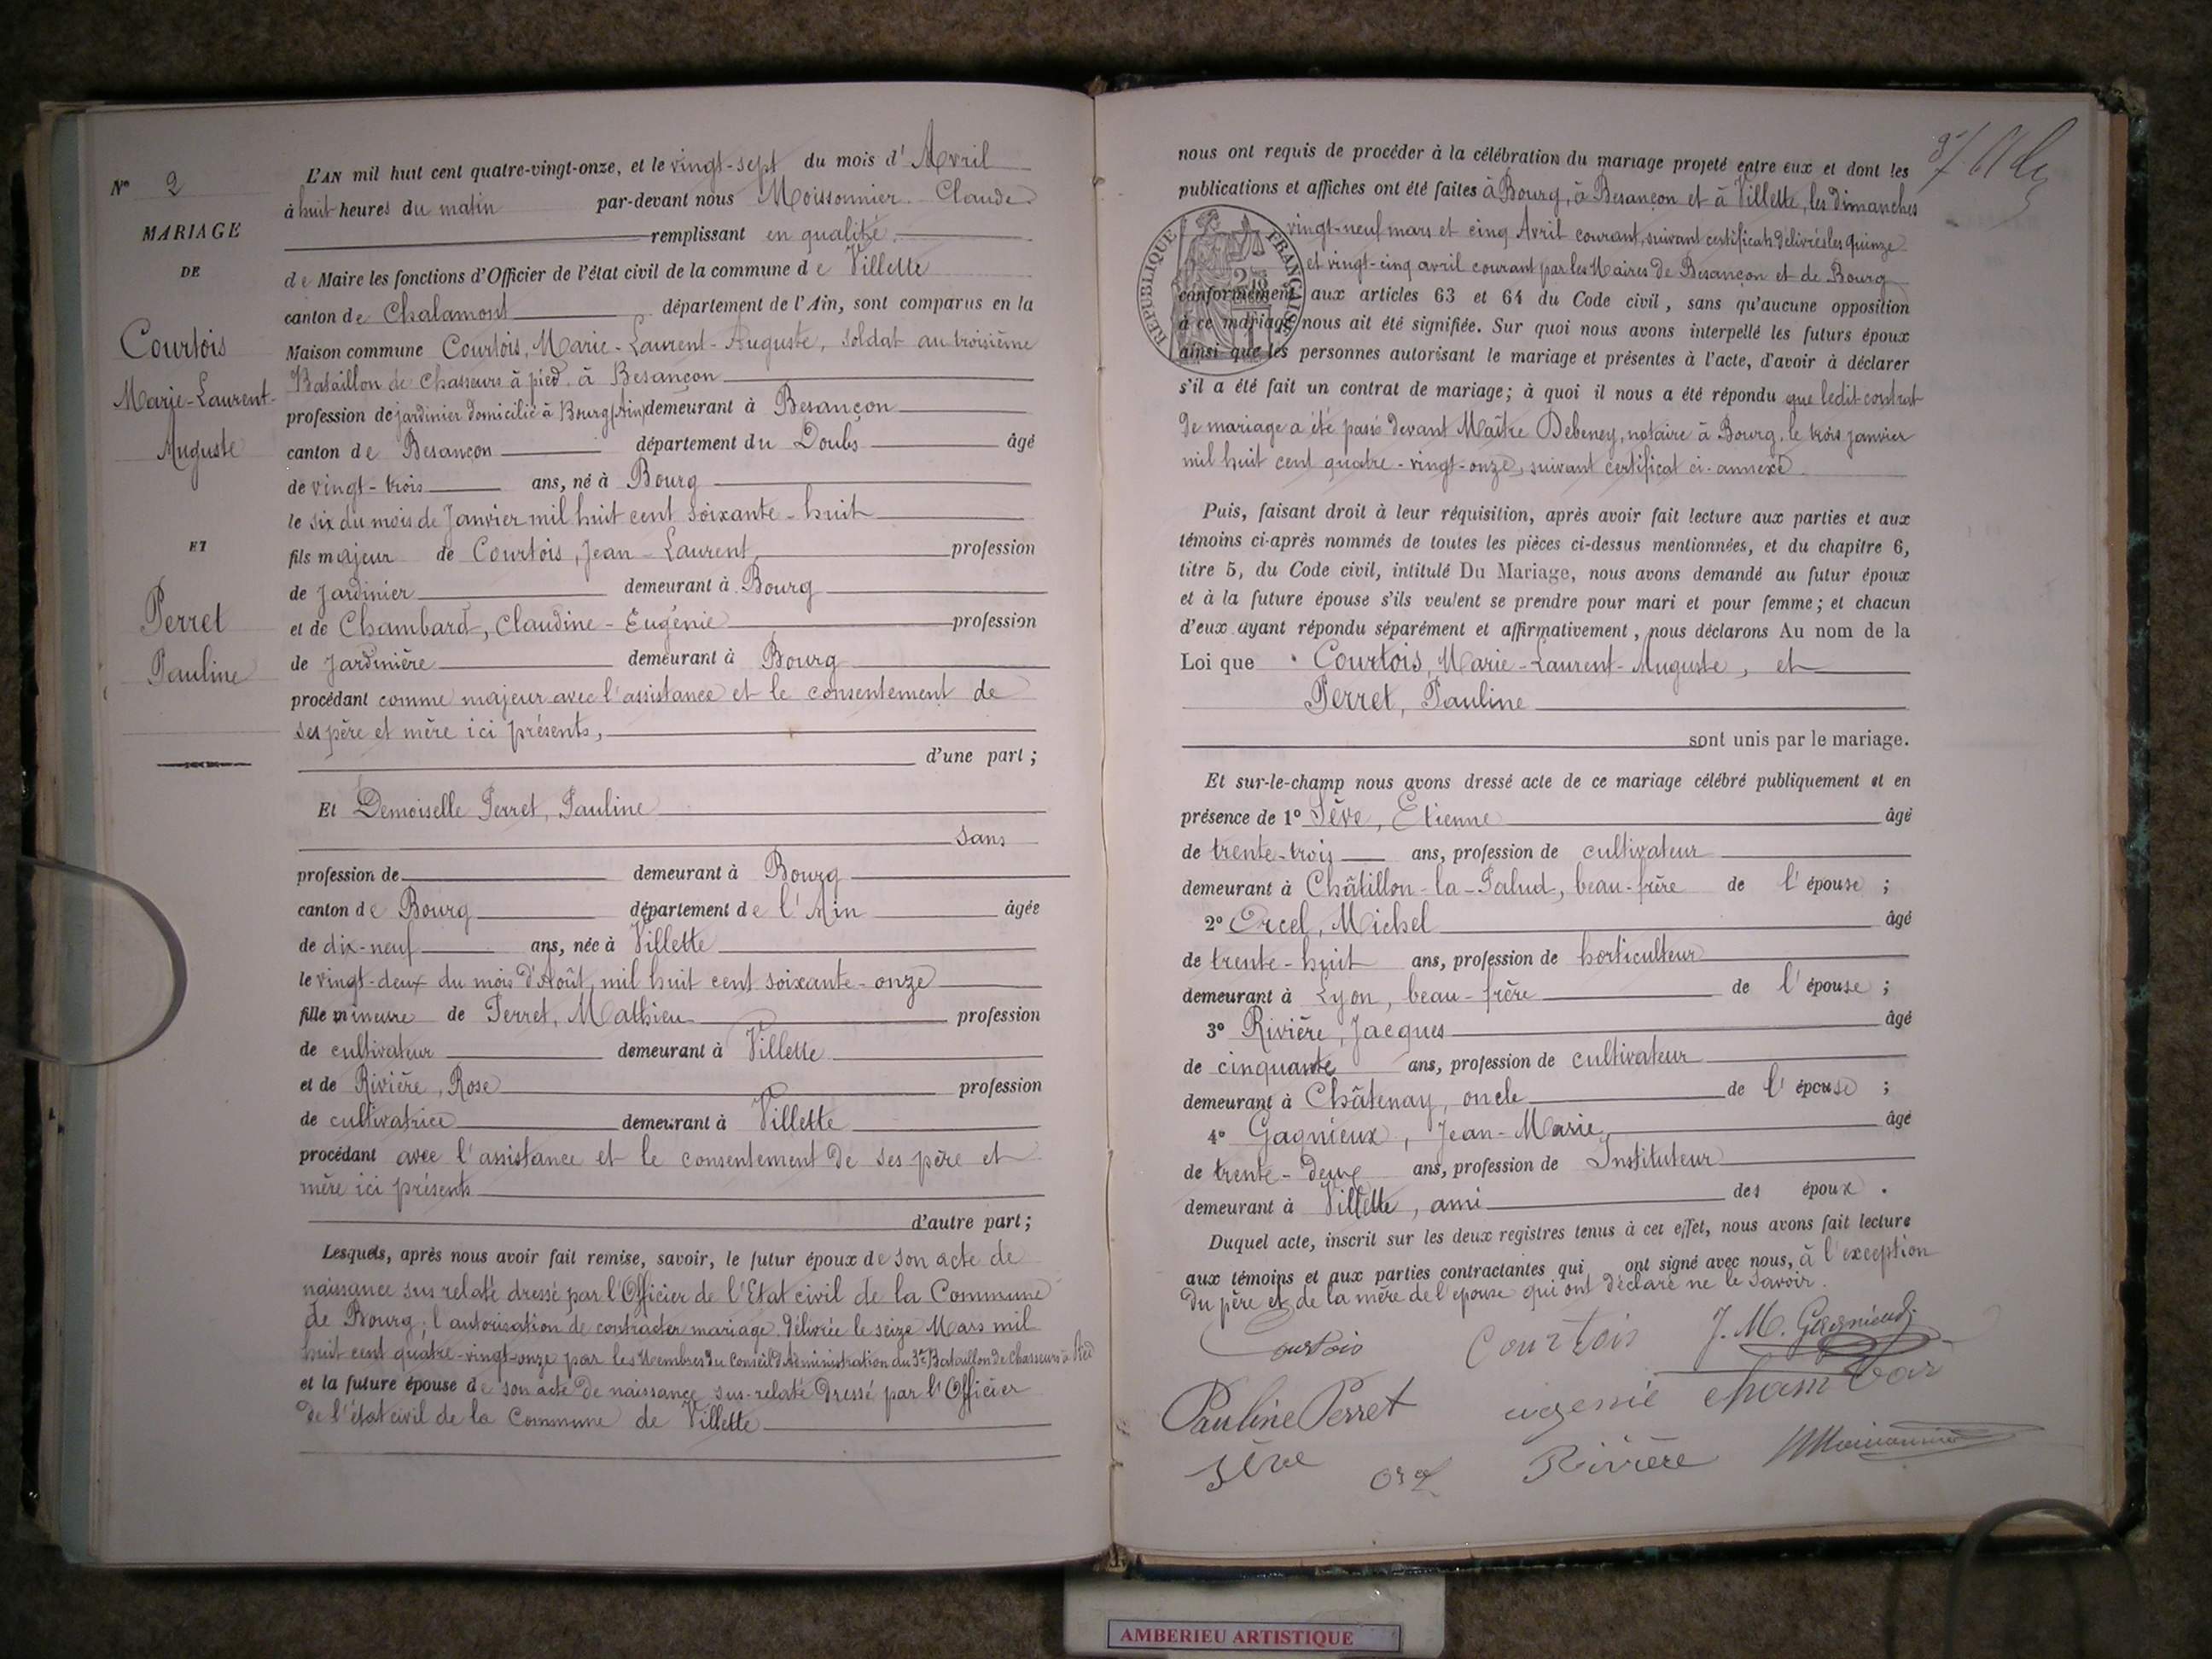 N° 2
MARIAGE
DE
Courtois
Marie-Laurent-
Auguste
ET
Perret
Pauline
L'AN mil huit cent quatre-vingt-onze, et le vingt-sept du mois d'Avril
à huit heures du matin par-devant nous Moissonnier Claude
remplissant en qualité
de Maire les fonctions d'Officier de l'état civil de la commune de Villette
canton de Chalamont département de l'Ain, sont comparus en la
Maison commune Courtois, Marie-Laurent-Auguste, soldat au troisième
Bataillon de Chasseurs à pied à Besançon
profession de jardinier domicilié à Bourg (Ain) demeurant à Besançon
canton de Besançon département du Doubs âgé
de vingt-trois ans, né à Bourg
le six du mois de Janvier mil huit cent soixante-huit
fils majeur de Courtois, Jean-Laurent, profession
de Jardinier demeurant à Bourg
et de Chambard, Claudine-Eugénie profession
de Jardinière demeurant à Bourg
procédant comme majeur avec l'assistance et le consentement de
ses père et mère ici présents,
d'une part;
Et Demoiselle Perret, Pauline
sans
profession de demeurant à Bourg
canton de Bourg département de l'Ain âgée
de dix-neuf ans, née à Villette
le vingt-deux du mois d'Août mil huit cent soixante-onze
fille mineure de Perret, Mathieu profession
de cultivateur demeurant à Villette
et de Rivière, Rose profession
de cultivatrice demeurant à Villette
procédant avec l'assistance et le consentement de ses père et
mère ici présents
d'autre part;
Lesquels, après nous avoir fait remise, savoir, le futur époux de son acte de
naissance sus relaté dressé par l'Officier de l'Etat civil de la Commune
de Bourg; l'autorisation de contracter mariage délivrée le seize Mars mil
huit cent quatre-vingt-onze par les Membres du Conseil d'Administration du 3e Bataillon de Chasseurs à Pied
et la future épouse de son acte de naissance sus-relaté dressé par l'Officier
de l'état civil de la Commune de Villette
nous ont requis de procéder à la célébration du mariage projeté entre eux et dont les
publications et affiches ont été faites à Bourg, à Besançon et à Villette, les dimanches
vingt-neuf mars et cinq Avril courant, suivant certificats délivrés les quinze
et vingt-cinq avril courant par les Maires de Besançon et de Bourg
RÉPUBLIQUE FRANÇAISE
conformément aux articles 63 et 64 du Code civil, sans qu'aucune opposition
à ce mariage nous ait été signifiée. Sur quoi nous avons interpellé les futurs époux
ainsi que les personnes autorisant le mariage et présentes à l'acte, d'avoir à déclarer
s'il a été fait un contrat de mariage; à quoi il nous a été répondu que ledit contrat
de mariage a été passé devant Maître Debeney, notaire à Bourg, le trois janvier
mil huit cent quatre-vingt-onze, suivant certificat ci-annexé.
Puis, faisant droit à leur réquisition, après avoir fait lecture aux parties et aux
témoins ci-après nommés de toutes les pièces ci-dessus mentionnées, et du chapitre 6,
titre 5, du Code civil, intitulé Du Mariage, nous avons demandé au futur époux
et à la future épouse s'ils veulent se prendre pour mari et pour femme; et chacun
d'eux ayant répondu séparément et affirmativement, nous déclarons Au nom de la
Loi que Courtois, Marie-Laurent-Auguste, et
Perret, Pauline
sont unis par le mariage.
Et sur-le-champ nous avons dressé acte de ce mariage célébré publiquement et en
présence de 1° Sève, Etienne âgé
de trente-trois ans, profession de cultivateur
demeurant à Châtillon-la-Palud, beau-frère de l'épouse;
2° Orcel, Michel âgé
de trente-huit ans, profession de horticulteur
demeurant à Lyon, beau-frère de l'épouse;
3° Rivière, Jacques âgé
de cinquante ans, profession de cultivateur
demeurant à Châtenay, oncle de l'épouse;
4° Gagnieux, Jean-Marie âgé
de trente-deux ans, profession de Instituteur
demeurant à Villette, ami des époux.
Duquel acte, inscrit sur les deux registres tenus à cet effet, nous avons fait lecture
aux témoins et aux parties contractantes qui ont signé avec nous, à l'exception
du père et de la mère de l'épouse qui ont déclaré ne le savoir.
Courtois Courtois J. M. Gagnieux
Pauline Perret eugenie chambar
Sève Orcel Rivière Moissonnier
AMBERIEU ARTISTIQUE